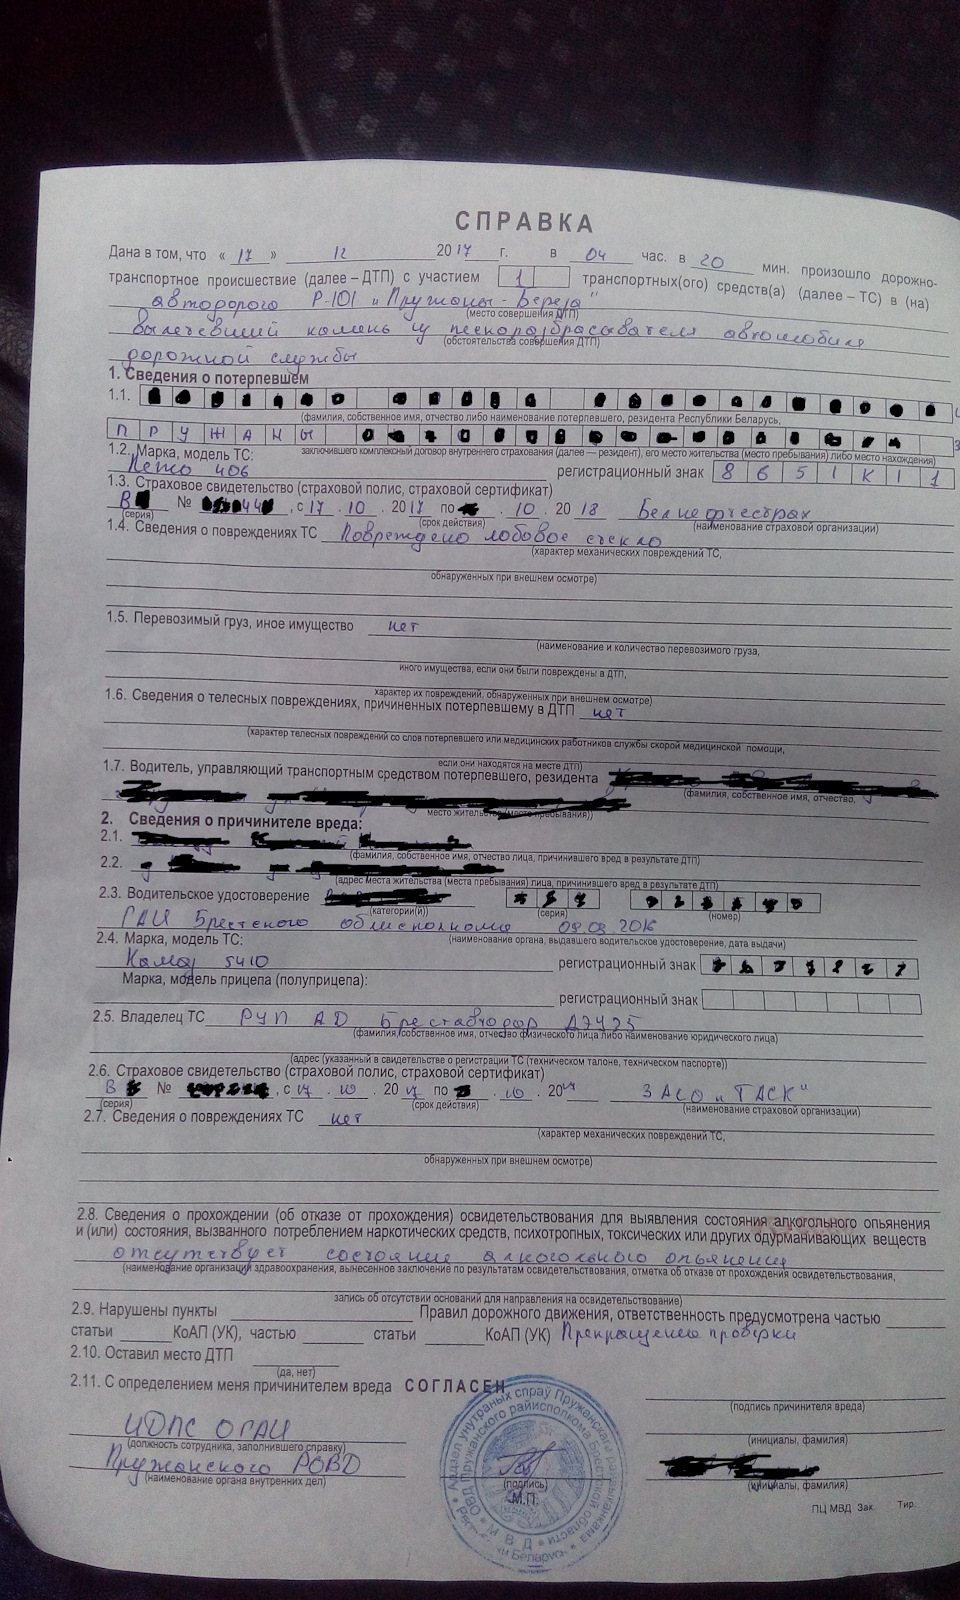 СПРАВКА
Дана в том, что « 17 » 12 2017 г. в 04 час. в 20 мин. произошло дорожно-
транспортное происшествие (далее – ДТП) с участием 1 транспортных(ого) средств(а) (далее – ТС) в (на)
автодорого Р-101 "Пружаны - Береза"
(место совершения ДТП)
вылетевший камень из пескоразбрасывателя автомобиля
(обстоятельства совершения ДТП)
дорожной службы
1. Сведения о потерпевшем
1.1.
(фамилия, собственное имя, отчество либо наименование потерпевшего, резидента Республики Беларусь,
ПРУЖАНЫ
заключившего комплексный договор внутреннего страхования (далее — резидент), его место жительства (место пребывания) либо место нахождения)
1.2. Марка, модель ТС:
Пежо 406 регистрационный знак 8651К11
1.3. Страховое свидетельство (страховой полис, страховой сертификат)
В № , с 17 . 10 . 2017 по . 10 . 2018 Белнефтестрах
(серия) (срок действия) (наименование страховой организации)
1.4. Сведения о повреждениях ТС Повреждено лобовое стекло
(характер механических повреждений ТС,
обнаруженных при внешнем осмотре)
1.5. Перевозимый груз, иное имущество нет
(наименование и количество перевозимого груза,
иного имущества, если они были повреждены в ДТП,
характер их повреждений, обнаруженных при внешнем осмотре)
1.6. Сведения о телесных повреждениях, причиненных потерпевшему в ДТП нет
(характер телесных повреждений со слов потерпевшего или медицинских работников службы скорой медицинской помощи,
если они находятся на месте ДТП)
1.7. Водитель, управляющий транспортным средством потерпевшего, резидента
(фамилия, собственное имя, отчество,
место жительства (место пребывания))
2. Сведения о причинителе вреда:
2.1.
(фамилия, собственное имя, отчество лица, причинившего вред в результате ДТП)
2.2.
(адрес места жительства (места пребывания) лица, причинившего вред в результате ДТП)
2.3. Водительское удостоверение
(категории(й)) (серия) (номер)
ГАИ Брестского облисполкома 09.09.2016
(наименование органа, выдавшего водительское удостоверение, дата выдачи)
2.4. Марка, модель ТС:
Камаз 5410 регистрационный знак
Марка, модель прицепа (полуприцепа):
регистрационный знак
2.5. Владелец ТС РУП АД Бреставтодор
(фамилия, собственное имя, отчество физического лица либо наименование юридического лица)
(адрес (указанный в свидетельстве о регистрации ТС (техническом талоне, техническом паспорте))
2.6. Страховое свидетельство (страховой полис, страховой сертификат)
В № , с 17 . 10 . 2017 по . 10 . 20 ЗАСО "ТАСК"
(серия) (срок действия) (наименование страховой организации)
2.7. Сведения о повреждениях ТС нет
(характер механических повреждений ТС,
обнаруженных при внешнем осмотре)
2.8. Сведения о прохождении (об отказе от прохождения) освидетельствования для выявления состояния алкогольного опьянения
и (или) состояния, вызванного потреблением наркотических средств, психотропных, токсических или других одурманивающих веществ
отсутствует состояние алкогольного опьянения
(наименование организации здравоохранения, вынесенное заключение по результатам освидетельствования, отметка об отказе от прохождения освидетельствования,
запись об отсутствии оснований для направления на освидетельствование)
2.9. Нарушены пункты Правил дорожного движения, ответственность предусмотрена частью
статьи КоАП (УК), частью статьи КоАП (УК) Прекращению проверки
2.10. Оставил место ДТП
(да, нет)
2.11. С определением меня причинителем вреда СОГЛАСЕН
(подпись причинителя вреда)
ИДПС ОГАИ
(должность сотрудника, заполнившего справку) (инициалы, фамилия)
Пружанского РОВД
(наименование органа внутренних дел) (подпись) (инициалы, фамилия)
М.П.
ПЦ МВД Зак. Тир.